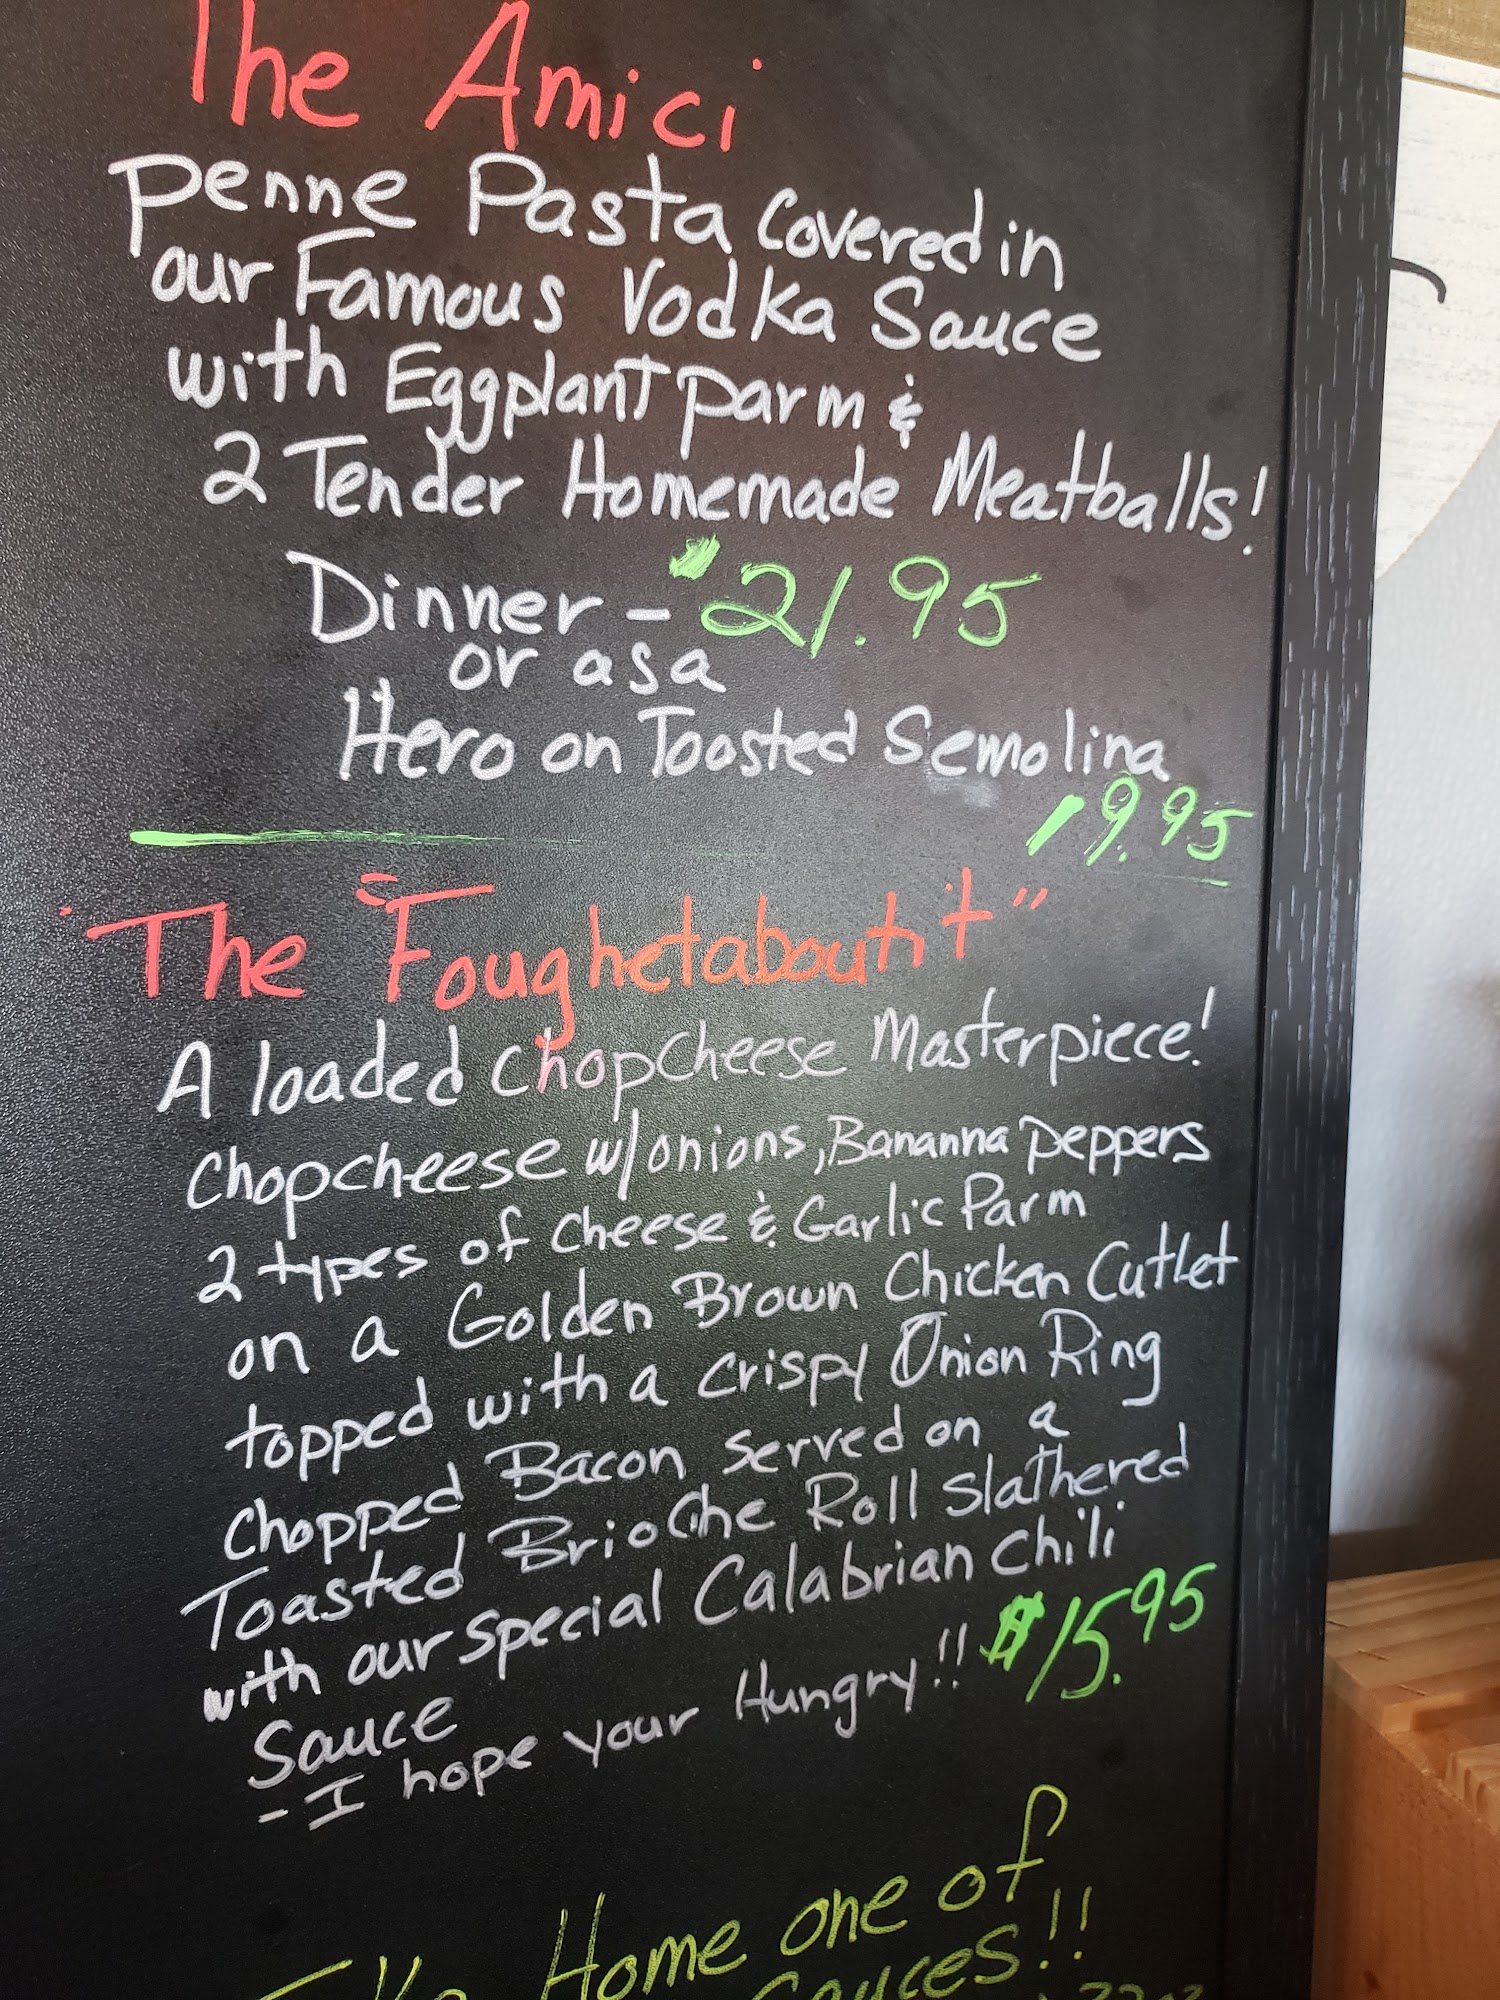 The Amici
Penne Pasta Covered in
our Famous Vodka Sauce
with Eggplant parm &
2 Tender Homemade Meatballs!
Dinner - $21.95
or as a
Hero on Toasted Semolina
19.95
The "Foughetaboutit"
A loaded ChopCheese Masterpiece!
Chopcheese w/onions, Bananna peppers
2 types of Cheese & Garlic Parm
on a Golden Brown Chicken Cutlet
topped with a crispy Onion Ring
Chopped Bacon served on a
Toasted Brioche Roll slathered
with our special Calabrian chili
Sauce
- I hope your Hungry!! $15.95
Home one of
Sauces!!